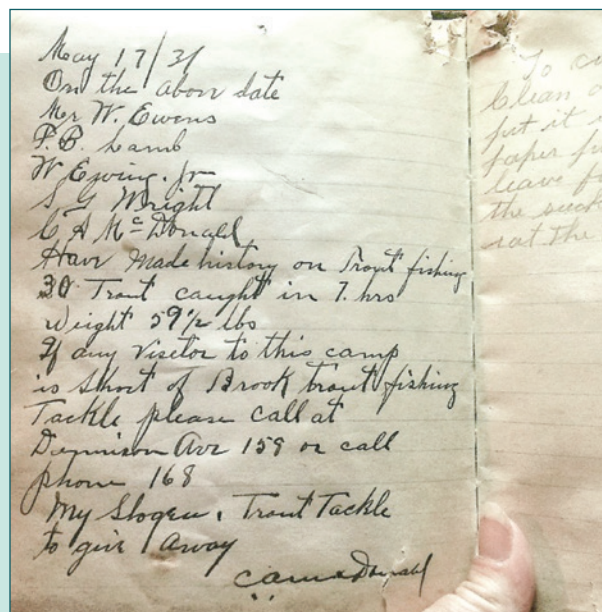 May 17/31
On the above date
Mr W. Ewens
P. B. Lamb
W Ewing. Jr
S G Wright
C A McDonald
Have Made history on Trout fishing
30 Trout caught in 7. hrs
Weight 59½ lbs
If any Visetor to this camp
is Short of Brook trout fishing
Tackle please call at
Dennison Ave 159 or call
phone 168
My Slogen, Trout Tackle
to give Away
C A McDonald
To
Clean
put it
paper
leave
the
eat the